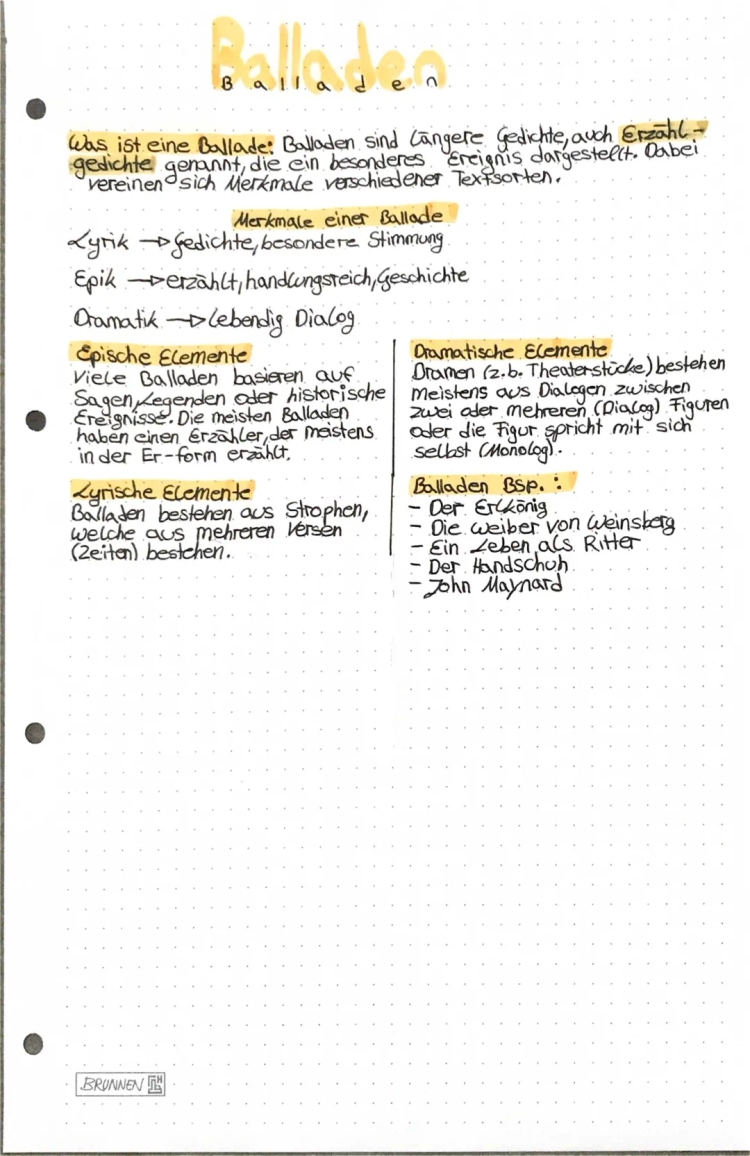 Balladen
Balladen
Was ist eine Ballade: Balladen sind längere Gedichte, auch Erzähl-
gedichte genannt, die ein besonderes Ereignis dargestellt. Dabei
vereinen sich Merkmale verschiedener Textsorten.
Merkmale einer Ballade
Lyrik → Gedichte, besondere Stimmung
Epik → erzählt, handlungsreich, Geschichte
Dramatik → Lebendig Dialog
Epische Elemente
Viele Balladen basieren auf
Sagen, Legenden oder historische
Ereignisse. Die meisten Balladen
haben einen Erzähler, der meistens
in der Er-form erzählt.
Lyrische Elemente
Balladen bestehen aus Strophen,
welche aus mehreren Versen
(Zeilen) bestehen.
Dramatische Elemente
Dramen (z.b. Theaterstücke) bestehen
meistens aus Dialogen zwischen
zwei oder mehreren (Dialog) Figuren
oder die Figur spricht mit sich
selbst (Monolog).
Balladen Bsp. :
- Der Erlkönig
- Die Weiber von Weinsberg
- Ein Leben als Ritter
- Der Handschuh
- John Maynard
BRUNNEN